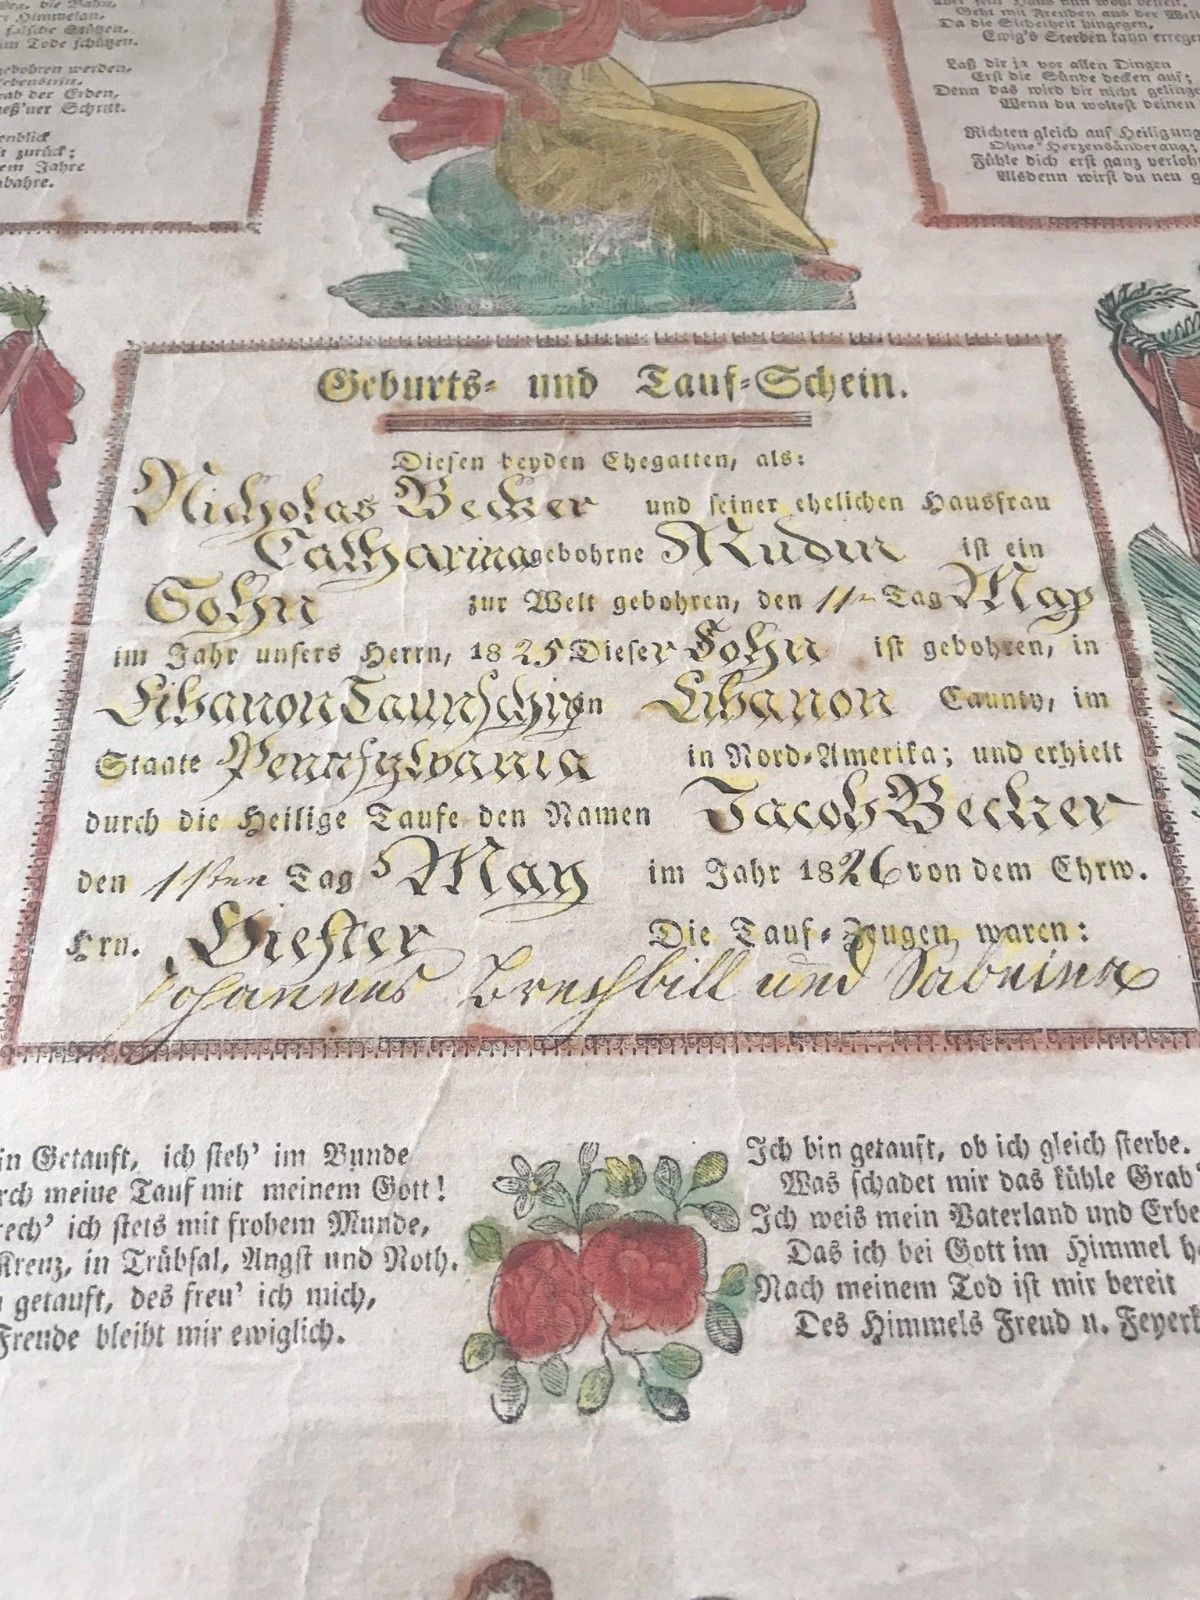 Weg, die Bahn,
Himmelan,
falsche Stützen,
im Tode schützen.
gebohren werden,
Lebenstritt,
Grab der Erden,
Schritt.
enblick
zurück:
Jahre
bahre.
Geht mit Freuden aus der Welt
Da die Sicherheit hingegen,
Ewig's Sterben kann erregen
Laß dir ja vor allen Dingen
Erst die Sünde decken auf;
Denn das wird dir nicht gelingen
Wenn du woltest deinen
Richten gleich auf Heiligung
Ohne Herzensänderung;
Fühle dich erst ganz verlohren
Alsdenn wirst du neu g
Geburts- und Tauf-Schein.
Diesen beyden Ehegatten, als:
Nicholas Becker und seiner ehelichen Hausfrau
Catharina gebohrne Rudin ist ein
Sohn zur Welt gebohren, den 11ten Tag May
im Jahr unsers Herrn, 1825 Dieser Sohn ist gebohren, in
Libanon Taunschip in Libanon Caunty, im
Staate Pennsylvania in Nord-Amerika; und erhielt
durch die Heilige Taufe den Namen Jacob Becker
den 1sten Tag May im Jahr 1826 von dem Ehrw.
Hrn. Hiester Die Tauf-Zeugen waren:
Johannes Brechbill und Sabeina
in Getauft, ich steh' im Bunde
rch meine Tauf mit meinem Gott!
rech' ich stets mit frohem Munde,
Kreuz, in Trübsal, Angst und Noth.
getauft, des freu' ich mich,
Freude bleibt mir ewiglich.
Ich bin getauft, ob ich gleich sterbe.
Was schadet mir das kühle Grab
Ich weis mein Vaterland und Erbe
Das ich bei Gott im Himmel h
Nach meinem Tod ist mir bereit
Des Himmels Freud u. Feyerk